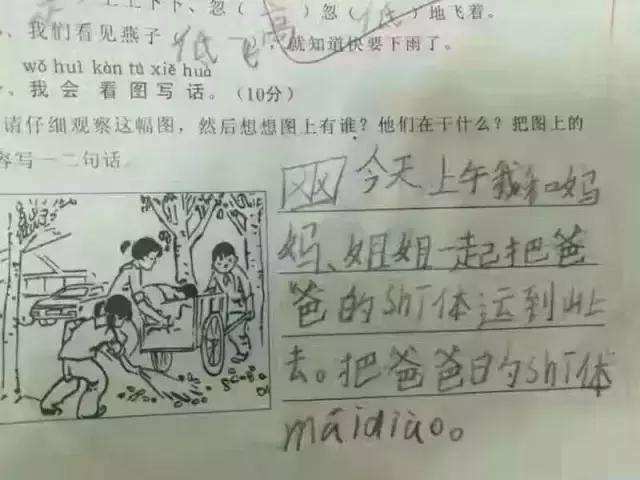 上上下下、忽（高）忽（低）地飞着。
、我们看见燕子低飞，就知道快要下雨了。
wǒ huì kàn tú xiě huà
、我会看图写话。（10分）
请仔细观察这幅图，然后想想图上有谁？他们在干什么？把图上的
容写一二句话。
今天上午我和妈
妈、姐姐一起把爸
爸的ShT体运到山上
去。把爸爸的ShT体
máidiào。